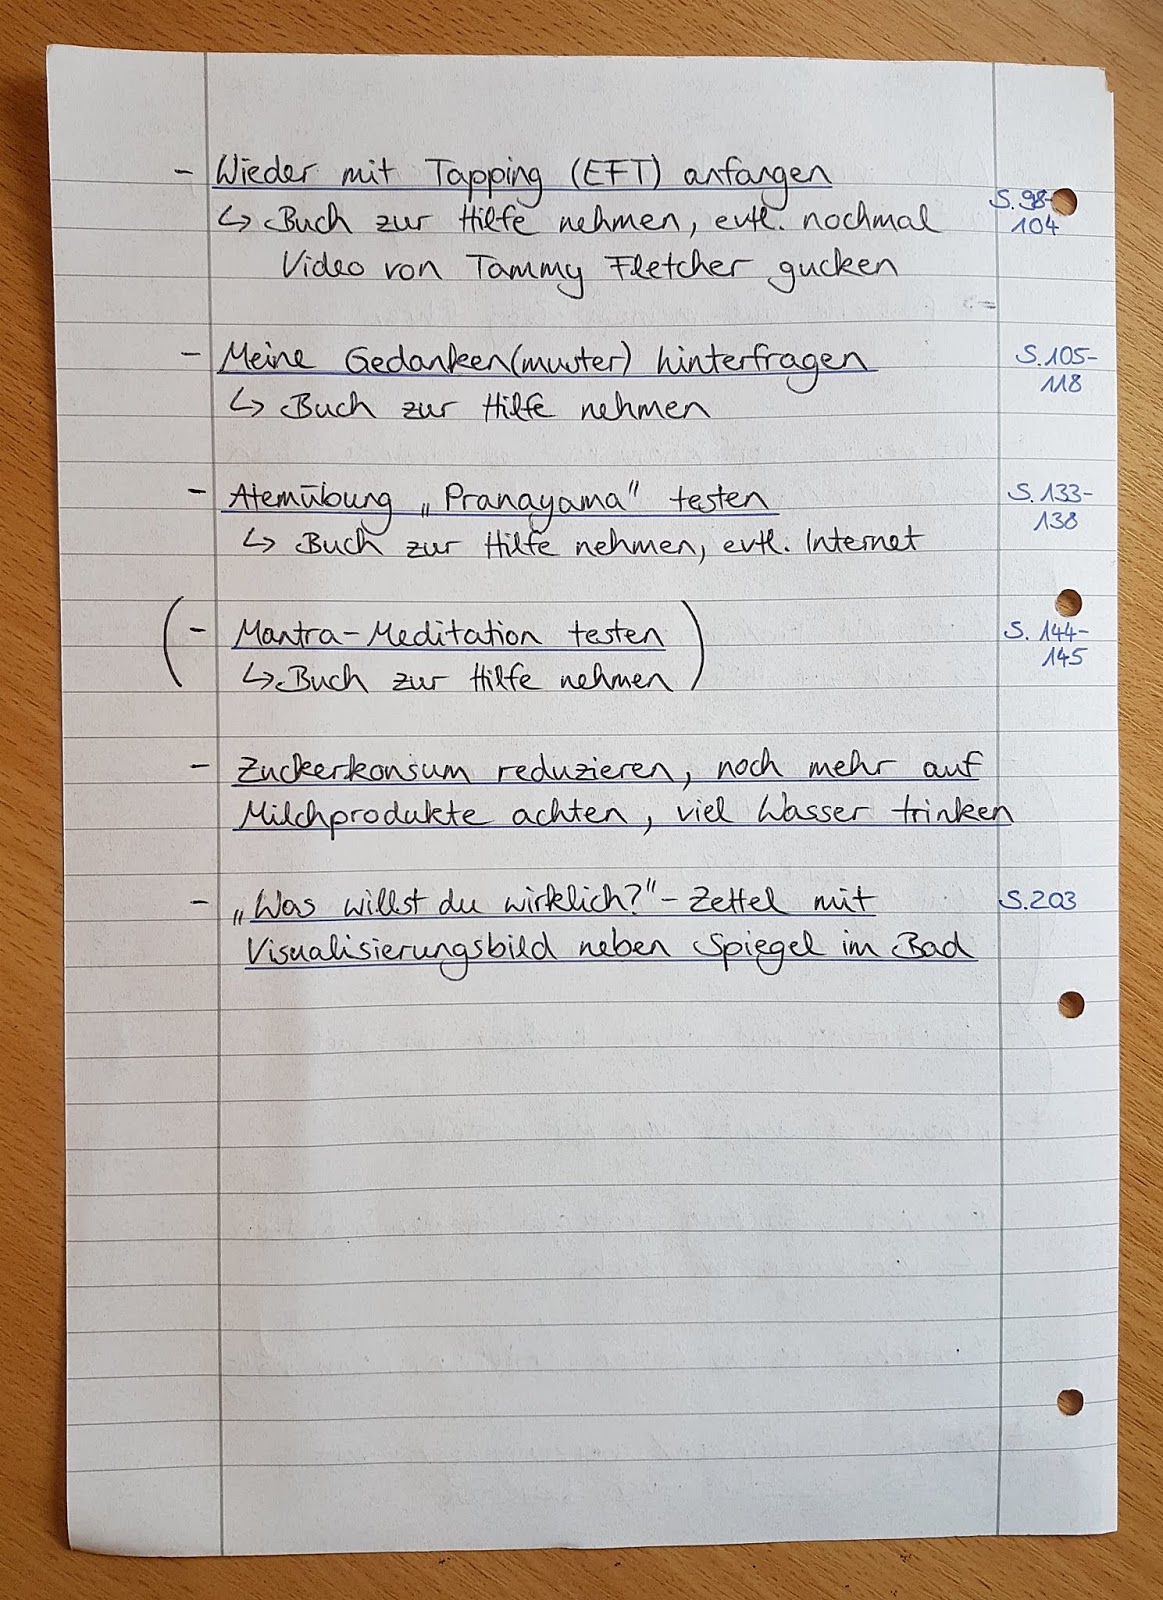 - Wieder mit Tapping (EFT) anfangen
↳ Buch zur Hilfe nehmen, evtl. nochmal
S. 98-
104
Video von Tammy Fletcher gucken
- Meine Gedanken(muster) hinterfragen
S. 105-
118
↳ Buch zur Hilfe nehmen
- Atemübung „Pranayama" testen
S. 133-
138
↳ Buch zur Hilfe nehmen, evtl. Internet
(- Mantra-Meditation testen
S. 144-
145
↳ Buch zur Hilfe nehmen)
- Zuckerkonsum reduzieren, noch mehr auf
Milchprodukte achten, viel Wasser trinken
- „Was willst du wirklich?"-Zettel mit
S. 203
Visualisierungsbild neben Spiegel im Bad